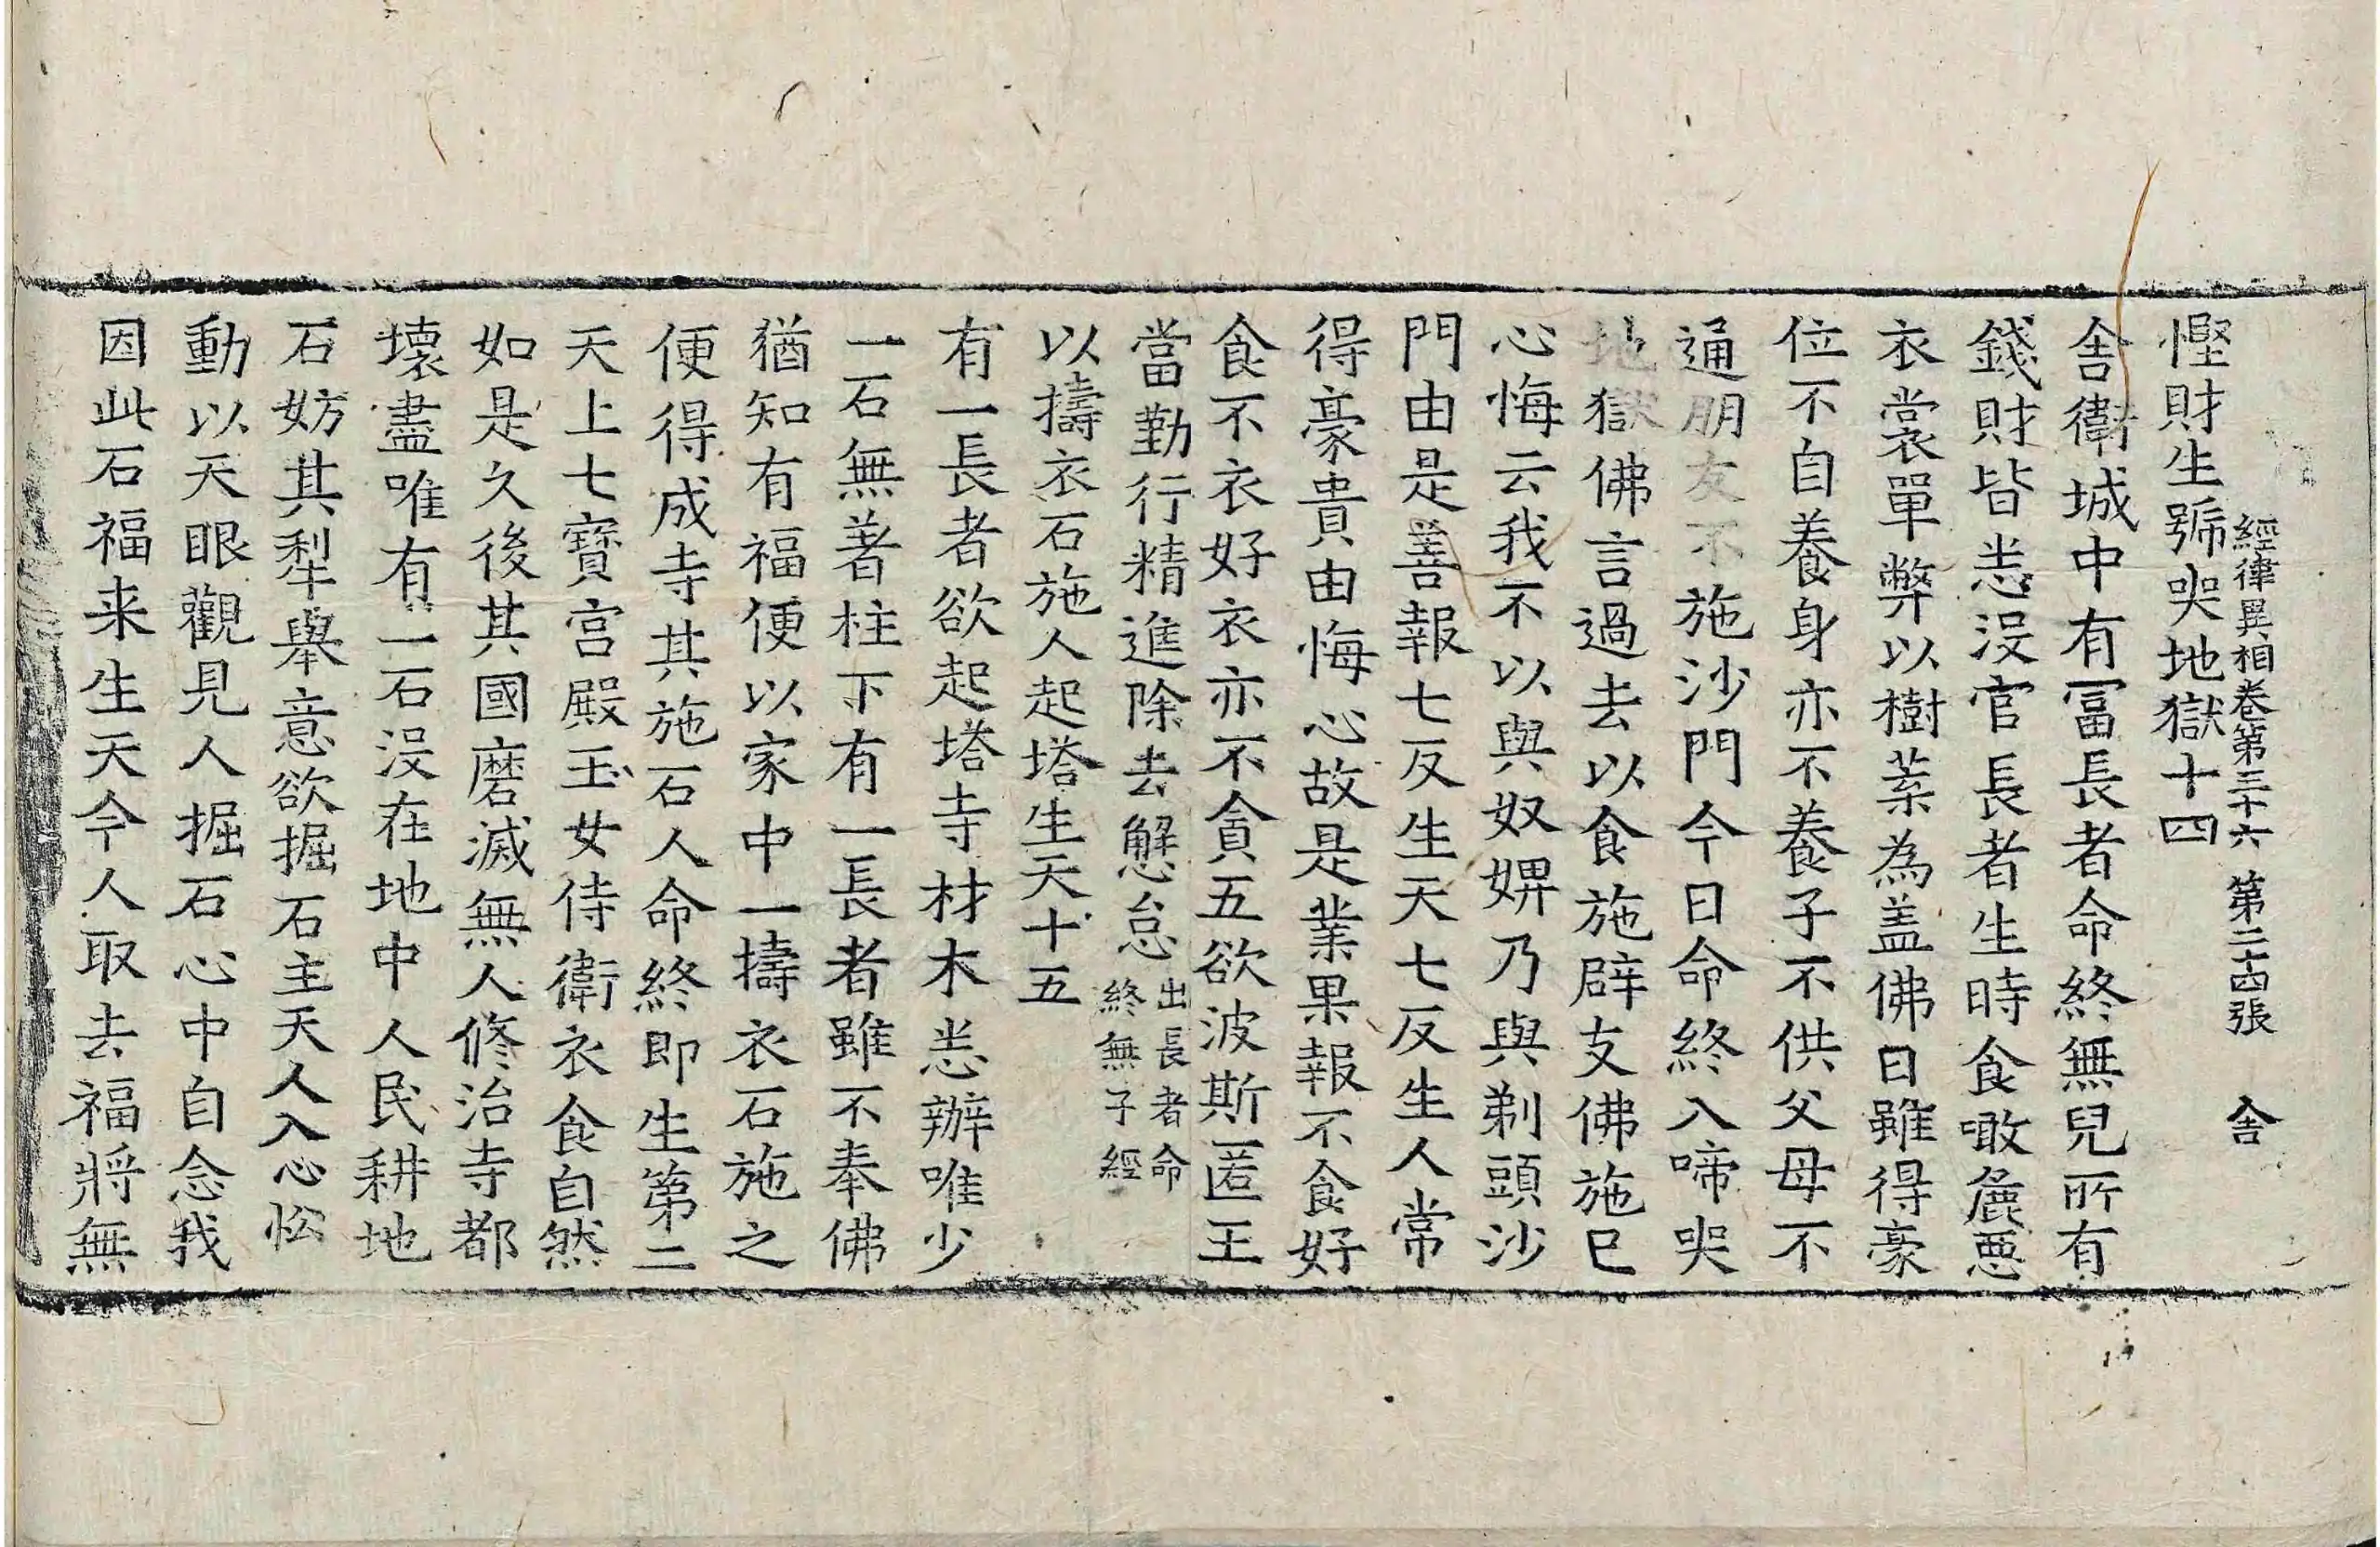 經律異相卷第三十六 第二十四張 舍
慳財生號哭地獄十四
舍衛城中有冨長者命終無兒所有
錢財皆悉没官長者生時食噉麁惡
衣裳單弊以樹葉為盖佛曰雖得豪
位不自養身亦不養子不供父母不
通朋友不施沙門今日命終入啼哭
地獄佛言過去以食施辟支佛施已
心悔云我不以與奴婢乃與剃頭沙
門由是善報七反生天七反生人常
得豪貴由悔心故是業果報不食好
食不衣好衣亦不貪五欲波斯匿王
當勤行精進除去懈怠出長者命終無子經
以擣衣石施人起塔生天十五
有一長者欲起塔寺材木悉辦唯少
一石無著柱下有一長者雖不奉佛
猶知有福便以家中一擣衣石施之
便得成寺其施石人命終即生第二
天上七寶宫殿玉女侍衛衣食自然
如是久後其國磨滅無人修治寺都
壊盡唯有一石没在地中人民耕地
石妨其犁舉意欲掘石主天人入心忪
動以天眼觀見人掘石心中自念我
因此石福来生天今人取去福將無